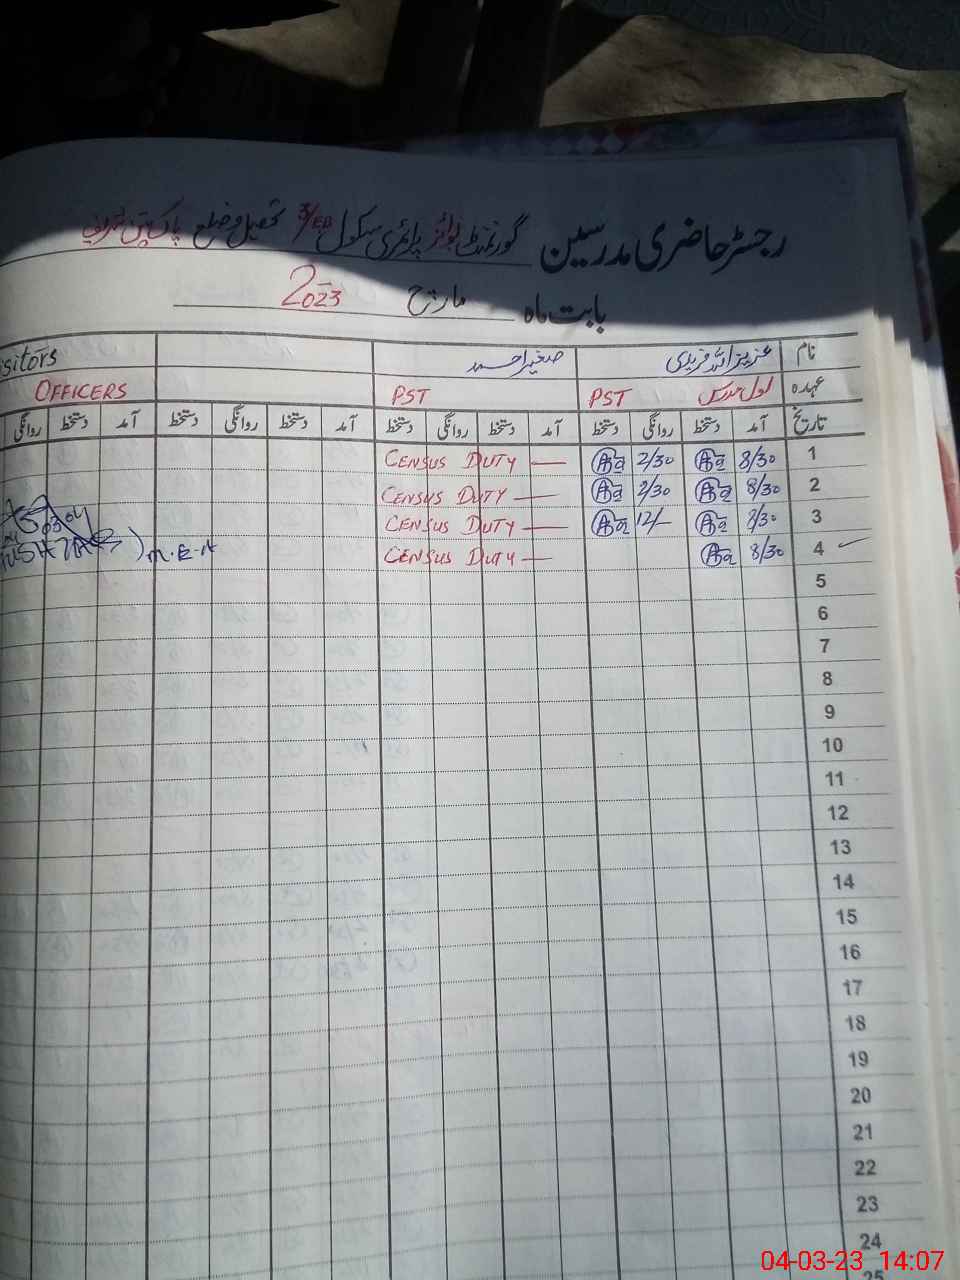 رجسٹر حاضری مدرسین گورنمنٹ بوائز پرائمری سکول 3/EB تحصیل و ضلع پاک پتن شریف
بابت ماہ مارچ 2023
نام عزیز فریدی صغیر احمد sitors
عہدہ اول مدرس PST PST OFFICERS
تاریخ آمد دستخط روانگی دستخط آمد دستخط روانگی دستخط آمد دستخط روانگی دستخط آمد دستخط روانگی
1 8/30 2/30 CENSUS DUTY —
2 8/30 2/30 CENSUS DUTY —
3 8/30 12/— CENSUS DUTY —
4 8/30 CENSUS DUTY — M.E.A
5
6
7
8
9
10
11
12
13
14
15
16
17
18
19
20
21
22
23
24
25
04-03-23 14:07